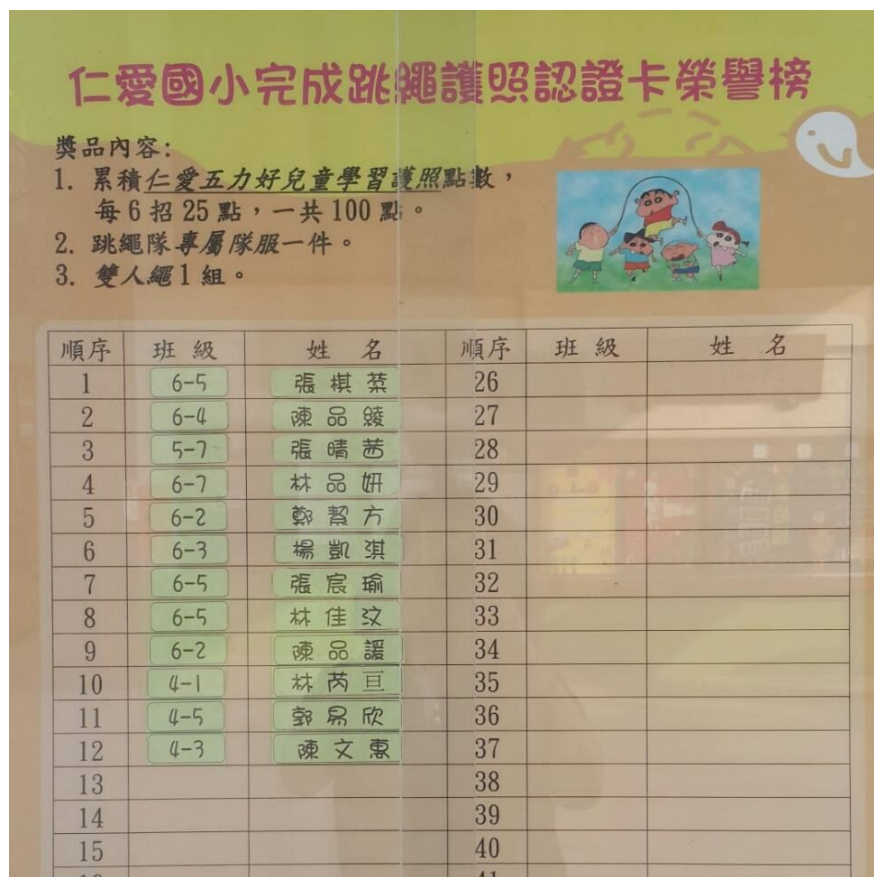 仁愛國小完成跳繩護照認證卡榮譽榜
獎品內容:
1. 累積仁愛五力好兒童學習護照點數，
每6招25點，一共100點。
2. 跳繩隊專屬隊服一件。
3. 雙人繩1組。
順序 班級 姓名 順序 班級 姓名
1 6-5 張棋菜 26
2 6-4 陳品綾 27
3 5-7 張晴茜 28
4 6-7 林品妍 29
5 6-2 鄭絜方 30
6 6-3 楊凱淇 31
7 6-5 張宸瑜 32
8 6-5 林佳汶 33
9 6-2 陳品諼 34
10 4-1 林芮亘 35
11 4-5 郭易欣 36
12 4-3 陳文惠 37
13 38
14 39
15 40